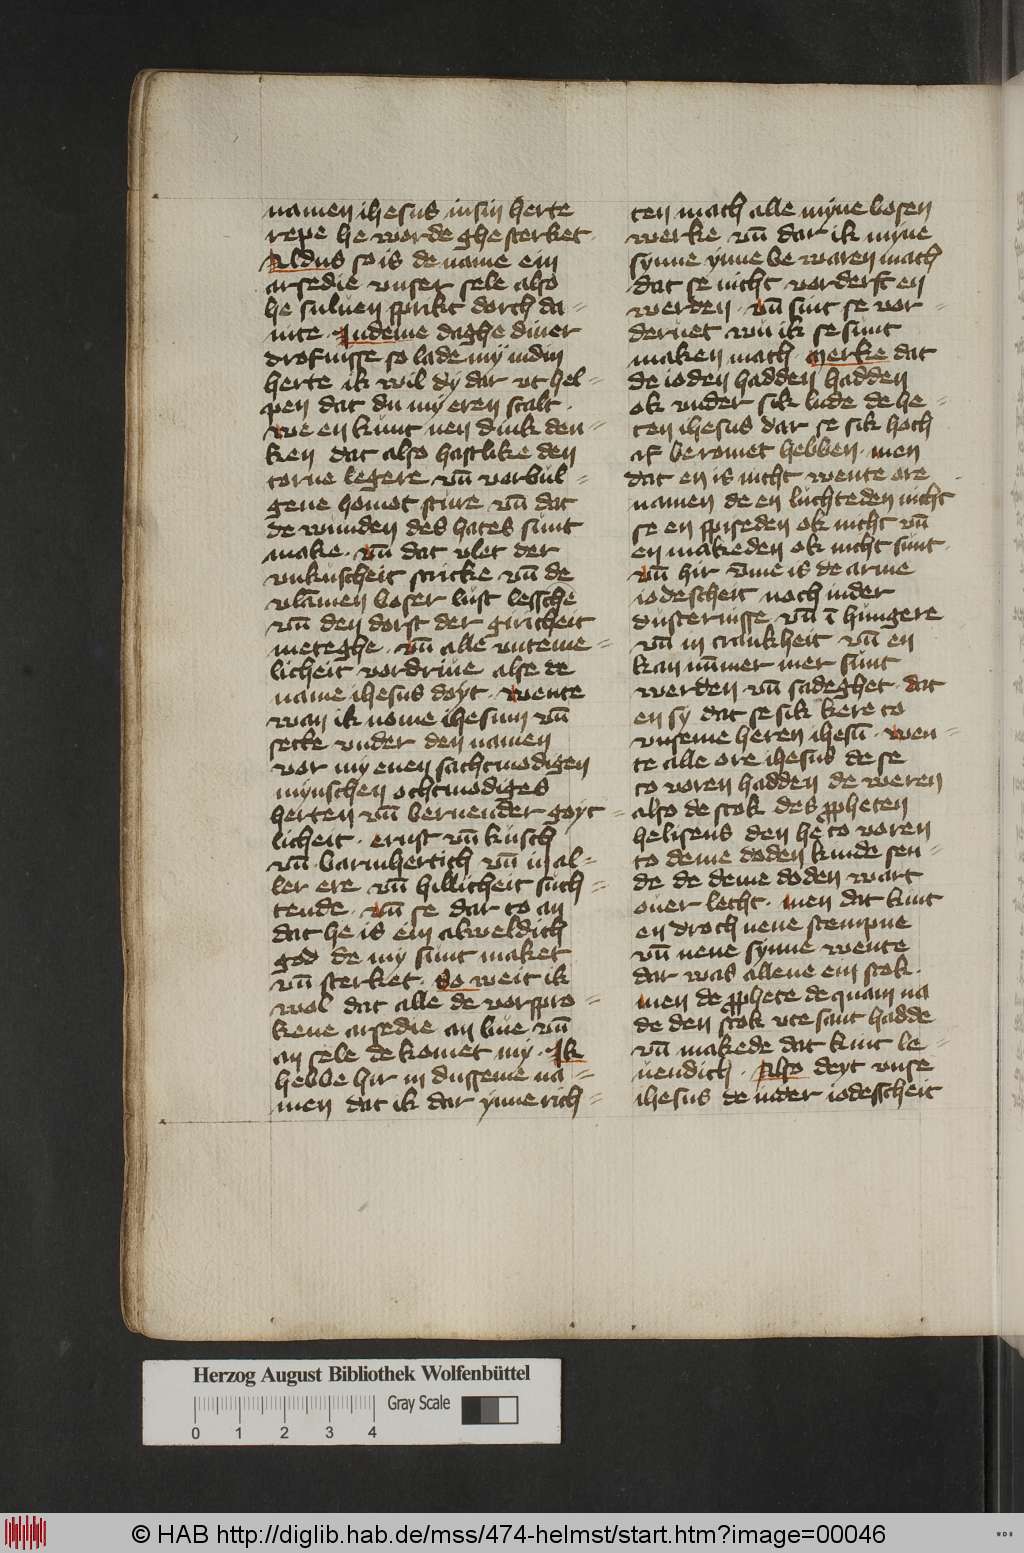 namen ihesus in sin herte
repe he worde ghesterket.
Aldus so is de name ein
arsedie vnser sele also
he suluen sprikt dorch da-
uite. In deme daghe diner
drofnisse so lade my in din
herte ik wil dy dar vt hel=
pen dat du my eren scalt.
We en kunt nen dink den=
ken dat also hastlike den
torne legere vn̄ vorbul=
gene homot sture vn̄ dat
de wunden des hates sunt
make. Vn̄ dat vlet der
vnkuscheit stricke vn̄ de
vlāmen boser lust lessche
vn̄ den dorst der giricheit
meteghe. Vn̄ alle vnteme=
licheit vordriue alse de
name ihesus doyt. Wente
wan ik nome ihesum vn̄
sette vnder den namen
vor my enen sachtmodigen
mynschen othmodiges
herten vn̄ bernender goyt=
licheit. ernst vn̄ kusch
vn̄ barmhertich vn̄ in al=
ler ere vn̄ hillicheit luch=
tende. Vn̄ se dar to an
dat he is ein alweldich
god de my sunt maket
vn̄ sterket. So weit ik
wol dat alle de vorspro=
kene arsedie an liue vn̄
an sele dekomet my. Ik
hebbe hir in dusseme na=
men dat ik dar ynne rich=
ten mach alle myne bosen
werke vn̄ dar ik myne
synne ynne be waren mach
dat se nicht vorderft en
werden. Vn̄ sint se vor-
deruet wu ik se sunt
maken mach. Merke dat
de ioden hadden hadden
ok vnder sik lude de he-
ten ihesus dar se sik hoch
af beromet hebben. men
dat en is nicht wente ore
namen de en luchteden nicht
se en spiseden ok nicht vn̄
en makeden ok nicht sunt.
Vn̄ hir v̄me is de arme
iodescheit noch in der
dusternisse vn̄ ī hungere
vn̄ in crankheit vn̄ en
kan nūmer mer sunt
werden vn̄ sadeghet. dat
en sy dat se sik kere to
vnseme heren ihesū. Wen=
te alle ore ihesus de se
to voren hadden de weren
also de stok des ꝓpheten
helisens den he to voren
to deme doden kinde sen-
de de deme doden wart
ouer lecht. Men dat kint
en droch nene stempne
vn̄ nene synne wente
dar was allene ein stok.
Men de ꝓphete de quam na
de den stok vte sant hadde
vn̄ makede dat kint le-
uendich. Also deyt vnse
ihesus de in der iodesscheit
Herzog August Bibliothek Wolfenbüttel
0 1 2 3 4 Gray Scale
© HAB http://diglib.hab.de/mss/474-helmst/start.htm?image=00046